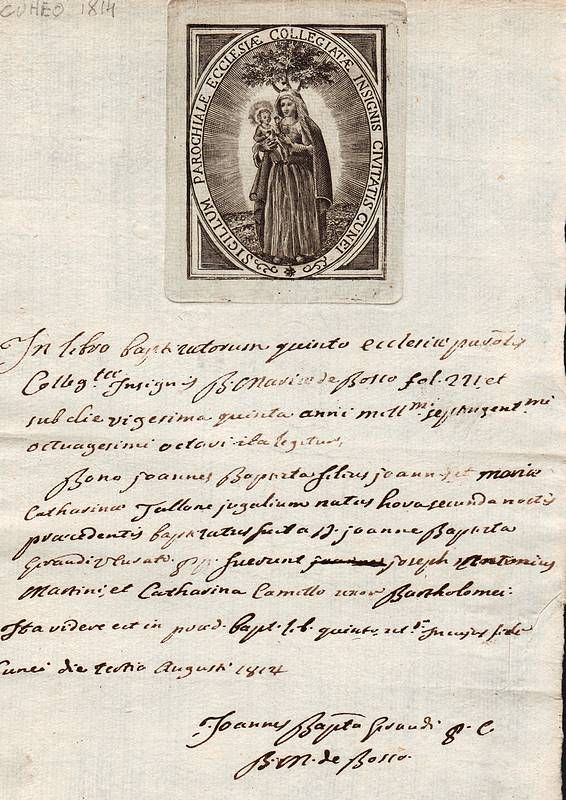 CUNEO 1814
SIGILLUM PAROCHIALE ECCLESIÆ COLLEGIATÆ INSIGNIS CIVITATIS CUNEI
In libro baptizatorum quinto ecclesiæ parolis
Collegtæ Insignis B. Mariæ de Bosco fol. 221 et
sub die vigesima quinta anni millmi septingentmi
octuagesimi octavi ita legitur
Bono joannes Baptista filius joannis et mariæ
Catharinæ Tallone jugalium natus hora secunda noctis
præcedentis baptizatus fuit a D. joanne Baptista
Girandi fuerunt joseph Antonius
Martini, et Catharina Camillo uxor Bartholomei.
Ita videre est in præd. bapt. lib. quinto in cujus fide
Cunei die tertia Augusti 1814
Joannes Bapta Girandi p. C
B. M. de Bosco.